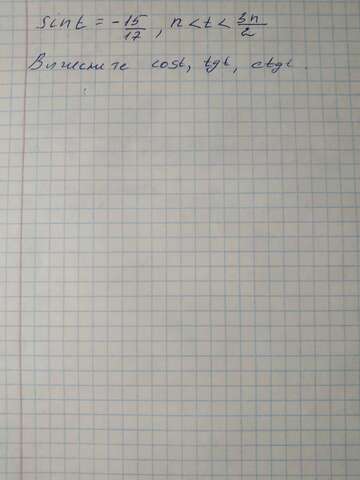 sin t = -15/17, π < t < 3π/2
Вычислите cost, tgt, ctgt.